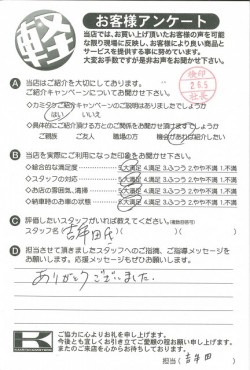 軽
お客様アンケート
当店では、お買い上げ頂いたお客様の声を可能
な限り現場に反映し、お客様により良い商品と
サービスを提供する事に努めています。
大変お手数ですが是非お声をお聞かせ下さい。
検印
2.6.5
A 当店はご紹介を大切にしております。
ご紹介キャンペーンについてお聞かせ下さい。
◇カミタケご紹介キャンペーンのご説明はありましたでしょうか
はい いいえ
◇具体的にご紹介頂ける方とのご関係をお聞かせ頂けますでしょうか
ご親族 ご友人 職場の方 機会があれば紹介したい
B 当店を実際にご利用になった印象をお聞かせ下さい。
◇総合的な満足度 5.大満足 4.満足 3.ふつう 2.やや不満 1.不満
◇スタッフの対応 5.大満足 4.満足 3.ふつう 2.やや不満 1.不満
◇お店の雰囲気、清掃 5.大満足 4.満足 3.ふつう 2.やや不満 1.不満
◇納車時のお車の状態 5.大満足 4.満足 3.ふつう 2.やや不満 1.不満
C 評価したいスタッフがいれば教えてください。(複数回答可)
スタッフ名 吉年田氏
D 担当させて頂きましたスタッフへのご指摘、ご指導メッセージを
お願いします。応援メッセージもぜひお願いします。
ありがとうございました。
K
ご協力に心よりお礼を申し上げます。
今後とも宜しくお引き立てご愛顧の程お願い申し上げます。
またのご来店を心からお待ちしております。